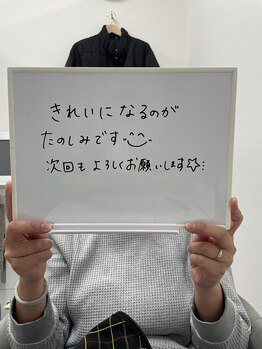 きれいになるのが
たのしみです
次回もよろしくお願いします☆: